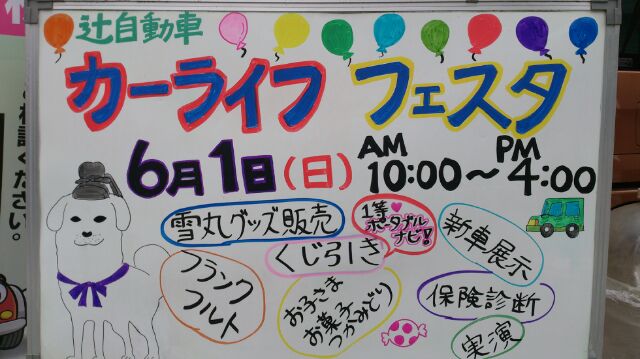 辻自動車
カーライフ フェスタ
6月1日(日) AM 10:00〜PM 4:00
雪丸グッズ販売
1等
ポータブル
ナビ!
くじ引き
新車展示
フランク
フルト
お子さま
お菓子
つかみどり
保険診断
実演
ください。